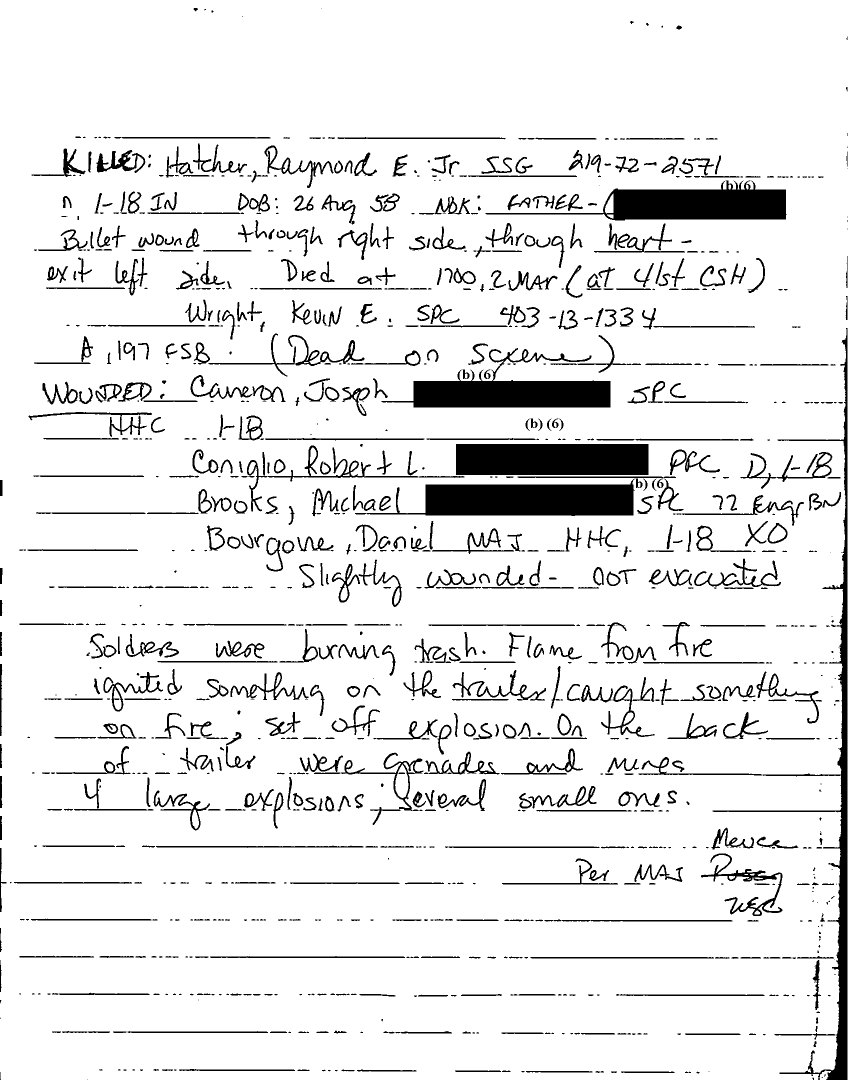 KILLED: Hatcher, Raymond E. Jr SSG 219-72-2571
(b)(6)
1-18 IN DOB: 26 Aug 58 NOK: FATHER - (
Bullet wound through right side, through heart -
exit left side. Died at 1700, 2 MAR (at 41st CSH)
Wright, Kevin E. SPC 403-13-1334
A, 197 FSB. (Dead on Scxene)
(b) (6)
WOUNDED: Cameron, Joseph SPC
HHC 1-18 (b) (6)
Coniglio, Robert L. PFC D, 1-18
(b) (6)
Brooks, Michael SPC 72 Engr BN
Bourgoine, Daniel MAJ HHC, 1-18 XO
Slightly wounded - not evacuated
Soldiers were burning trash. Flame from fire
ignited something on the trailer/caught something
on fire; set off explosion. On the back
of trailer were grenades and mines
4 large explosions; several small ones.
Per MAJ